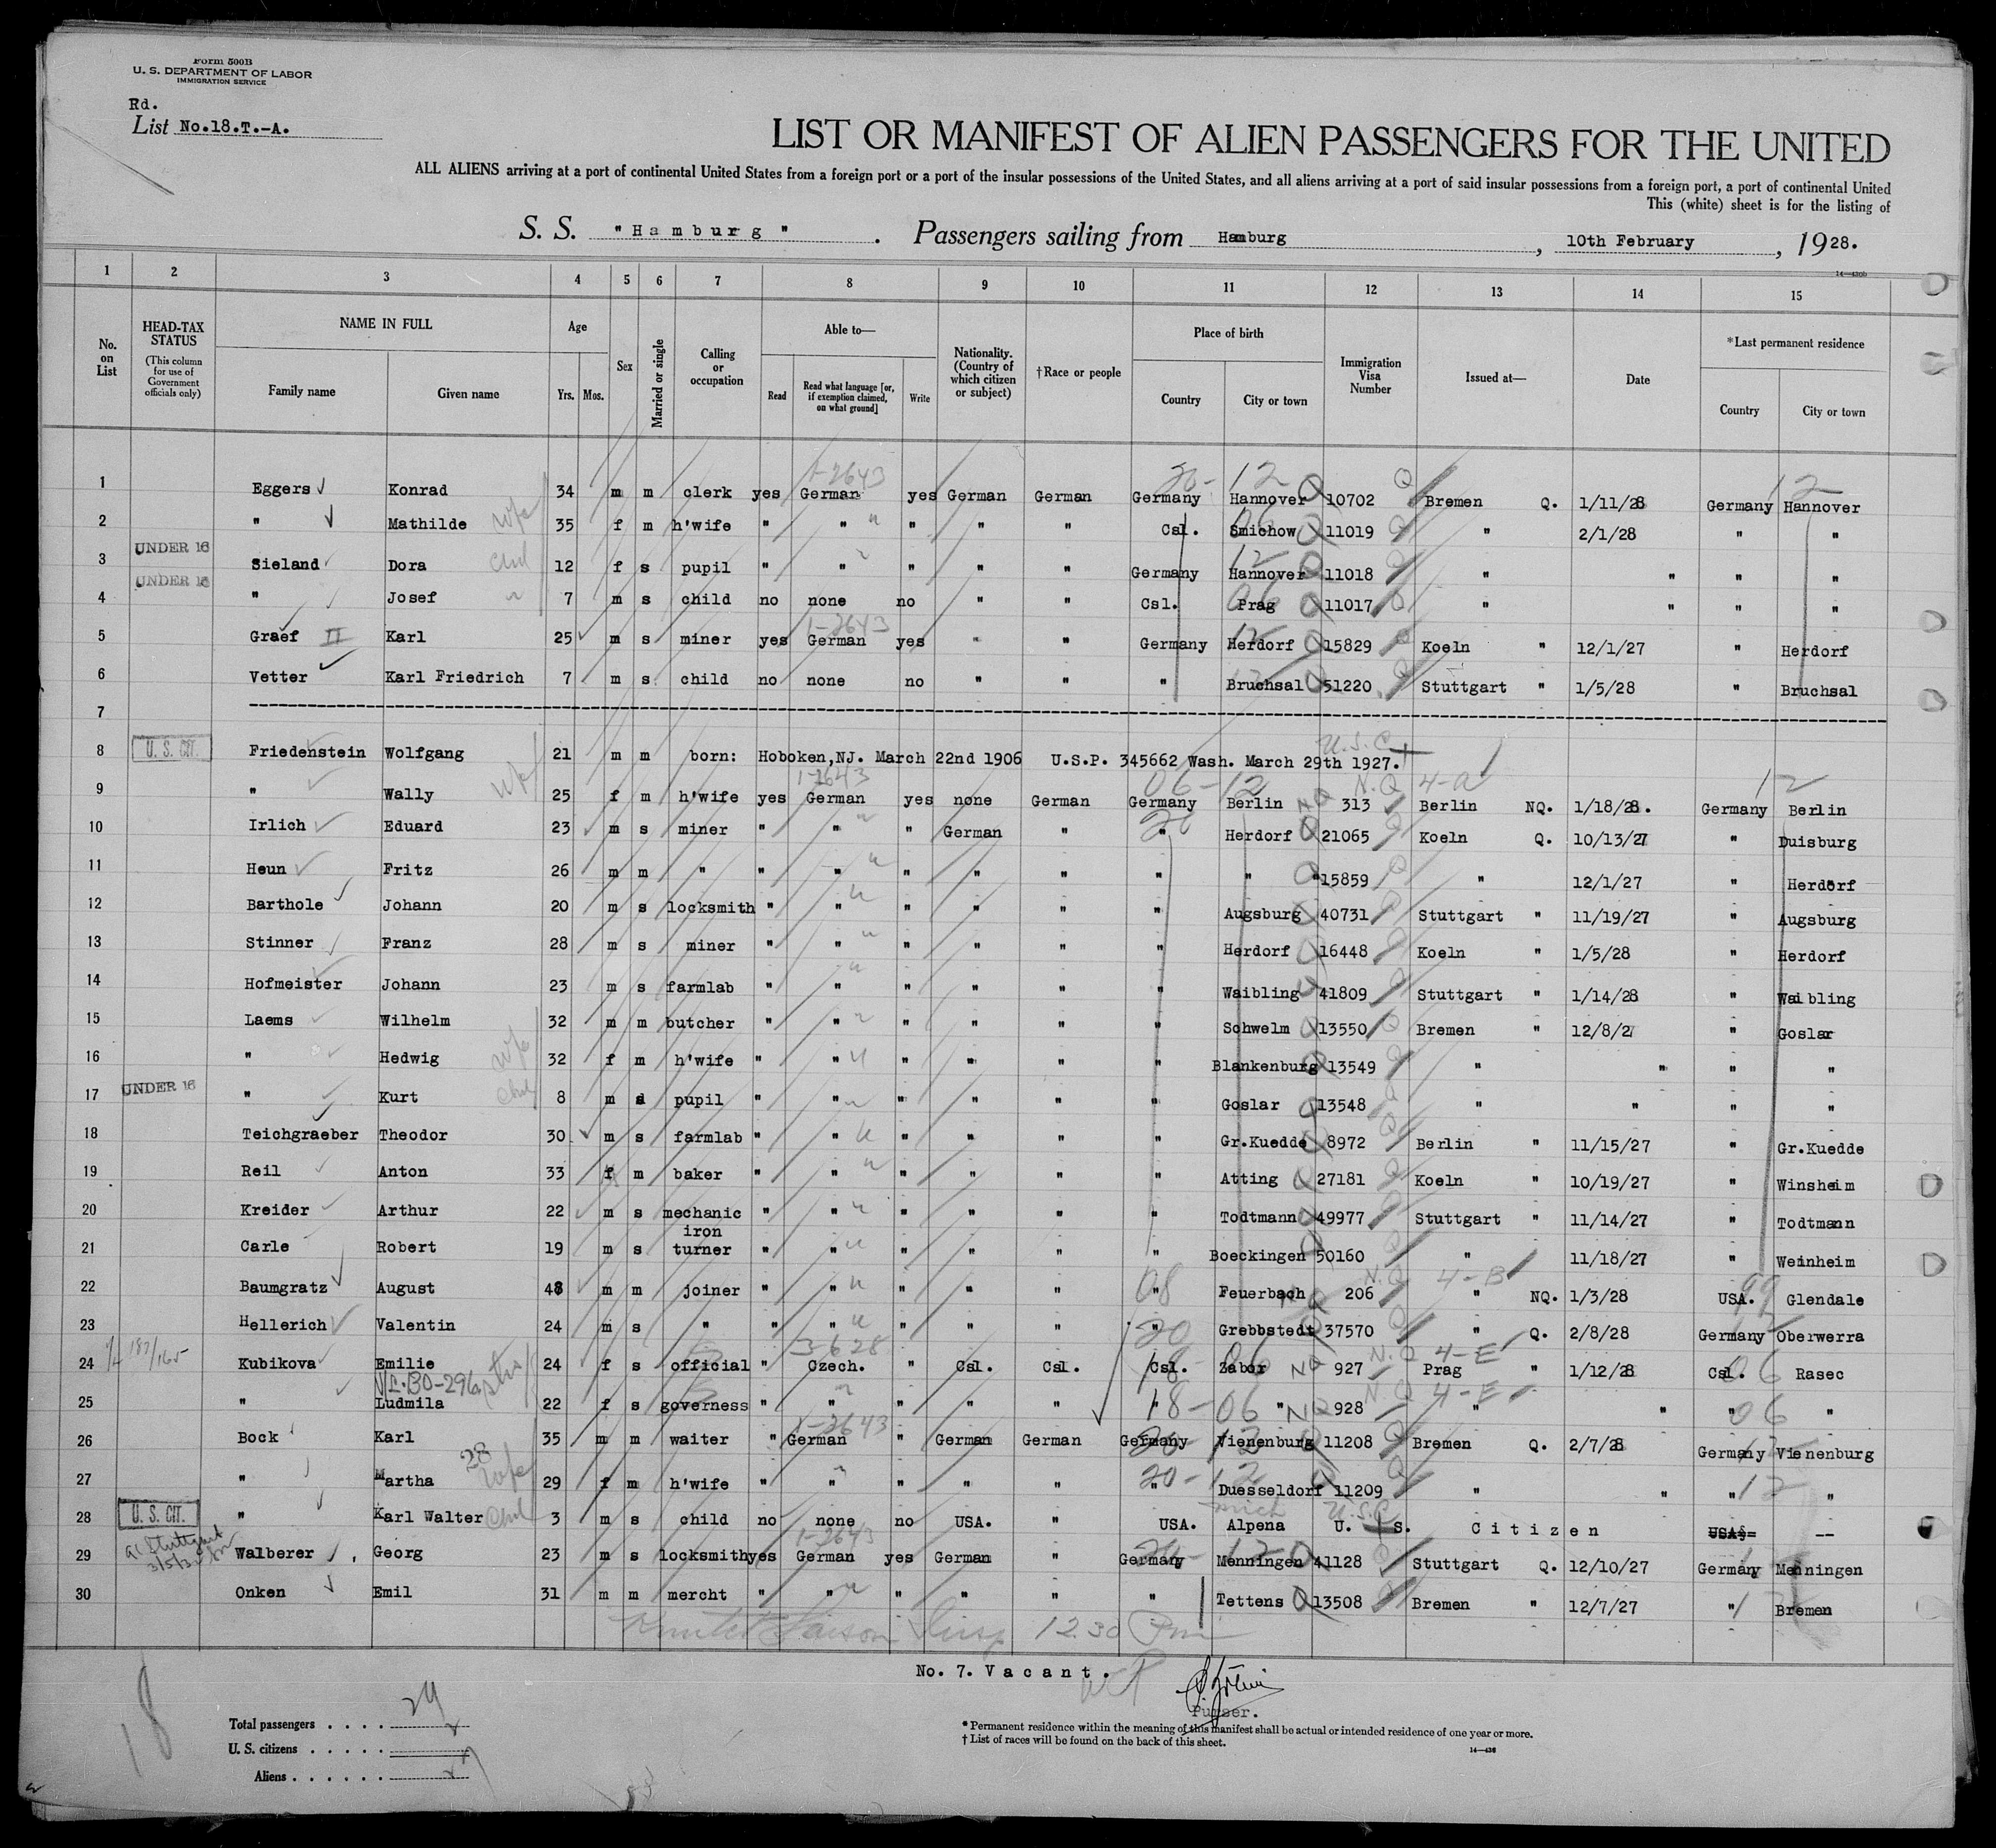 Form 500B
U. S. DEPARTMENT OF LABOR
IMMIGRATION SERVICE
Rd.
List No.18.T.-A.
LIST OR MANIFEST OF ALIEN PASSENGERS FOR THE UNITED
ALL ALIENS arriving at a port of continental United States from a foreign port or a port of the insular possessions of the United States, and all aliens arriving at a port of said insular possessions from a foreign port, a port of continental United
This (white) sheet is for the listing of
S. S. "Hamburg". Passengers sailing from Hamburg, 10th February, 1928.
14—430b
1 2 3 4 5 6 7 8 9 10 11 12 13 14 15
No. on List
HEAD-TAX STATUS (This column for use of Government officials only)
NAME IN FULL Family name Given name
Age Yrs. Mos.
Sex
Married or single
Calling or occupation
Able to— Read Read what language [or, if exemption claimed, on what ground] Write
Nationality. (Country of which citizen or subject)
†Race or people
Place of birth Country City or town
Immigration Visa Number
Issued at—
Date
*Last permanent residence Country City or town
1-2643 20- 12 Q 12
1 Eggers Konrad 34 m m clerk yes German yes German German Germany Hannover 10702 Bremen Q. 1/11/28 Germany Hannover
2 " Mathilde wife 35 f m h'wife " " " " " Csl. Smichow 11019 " 2/1/28 " "
UNDER 16
3 Sieland Dora 12 f s pupil " " " " " Germany Hannover 11018 " " " "
UNDER 16
4 " Josef 7 m s child no none no " " Csl. Prag 11017 " " " "
1-2643
5 Graef II Karl 25 m s miner yes German yes " " Germany Herdorf 15829 Koeln " 12/1/27 " Herdorf
6 Vetter Karl Friedrich 7 m s child no none no " " " Bruchsal 51220 Stuttgart " 1/5/28 " Bruchsal
7
U.S.C.
8 U. S. CIT. Friedenstein Wolfgang 21 m m born: Hoboken,NJ. March 22nd 1906 U.S.P. 345662 Wash. March 29th 1927.
1-2643 06-12 N.Q 4-a 12
9 " Wally wife 25 f m h'wife yes German yes none German Germany Berlin NQ 313 Berlin NQ. 1/18/28. Germany Berlin
10 Irlich Eduard 23 m s miner " " " German " " Herdorf 21065 Koeln Q. 10/13/27 " Duisburg
11 Heun Fritz 26 m m " " " " " " " " 15859 " 12/1/27 " Herdorf
12 Barthole Johann 20 m s locksmith " " " " " " Augsburg 40731 Stuttgart " 11/19/27 " Augsburg
13 Stinner Franz 28 m s miner " " " " " " Herdorf 16448 Koeln " 1/5/28 " Herdorf
14 Hofmeister Johann 23 m s farmlab " " " " " " Waibling 41809 Stuttgart " 1/14/28 " Waibling
15 Laems Wilhelm 32 m m butcher " " " " " " Schwelm 13550 Bremen " 12/8/27 " Goslar
16 " Hedwig wife 32 f m h'wife " " " " " " Blankenburg 13549 " " " "
UNDER 16
17 " Kurt 8 m s pupil " " " " " " Goslar 13548 " " " "
18 Teichgraeber Theodor 30 m s farmlab " " " " " " Gr.Kuedde 8972 Berlin " 11/15/27 " Gr.Kuedde
19 Reil Anton 33 f m baker " " " " " " Atting 27181 Koeln " 10/19/27 " Winsheim
20 Kreider Arthur 22 m s mechanic " " " " " " Todtmann 49977 Stuttgart " 11/14/27 " Todtmann
iron
21 Carle Robert 19 m s turner " " " " " " Boeckingen 50160 " 11/18/27 " Weinheim
08 N.Q 4-B
22 Baumgratz August 48 m m joiner " " " " " " Feuerbach 206 " NQ. 1/3/28 USA. Glendale
23 Hellerich Valentin 24 m s " " " " " " 20 Grebbstedt 37570 " Q. 2/8/28 Germany Oberwerra
3-628 N.Q 4-E
24 Kubikova Emilie 24 f s official " Czech. " Csl. Csl. Csl. Zabor NQ 927 Prag " 1/12/28 Csl. Rasec
N.Q 4-E
25 " Ludmila 22 f s governess " " " " " 18-06 " NQ 928 " " " 06 "
1-2643
26 Bock Karl 35 m m waiter " German " German German Germany Vienenburg 11208 Bremen Q. 2/7/28 Germany Vienenburg
28 20-12
27 " Martha wife 29 f m h'wife " " " " " " Duesseldorf 11209 " " " 12 "
Mich U.S.C
28 U. S. CIT. " Karl Walter 3 m s child no none no USA. " USA. Alpena U. S. Citizen USA. --
1-2643
29 Walberer Georg 23 m s locksmith yes German yes German " Germany Menningen 41128 Stuttgart Q. 12/10/27 Germany Menningen
30 Onken Emil 31 m m mercht " " " " " " Tettens 13508 Bremen " 12/7/27 " Bremen
12.30 Pm
No. 7. Vacant.
Purser.
18
Total passengers . . . . 29
U. S. citizens . . . . . 2
Aliens . . . . . . 27
* Permanent residence within the meaning of this manifest shall be actual or intended residence of one year or more.
† List of races will be found on the back of this sheet.
14—430